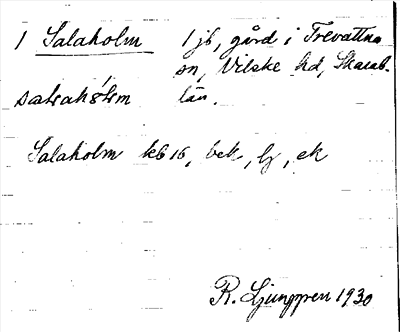 1 Salaholm 1 jb, gård i Trevattna
sn, Vilske hd, Skarab-
län.
Salaholm kb 16, bek, lj, ek
R. Ljunggren 1930